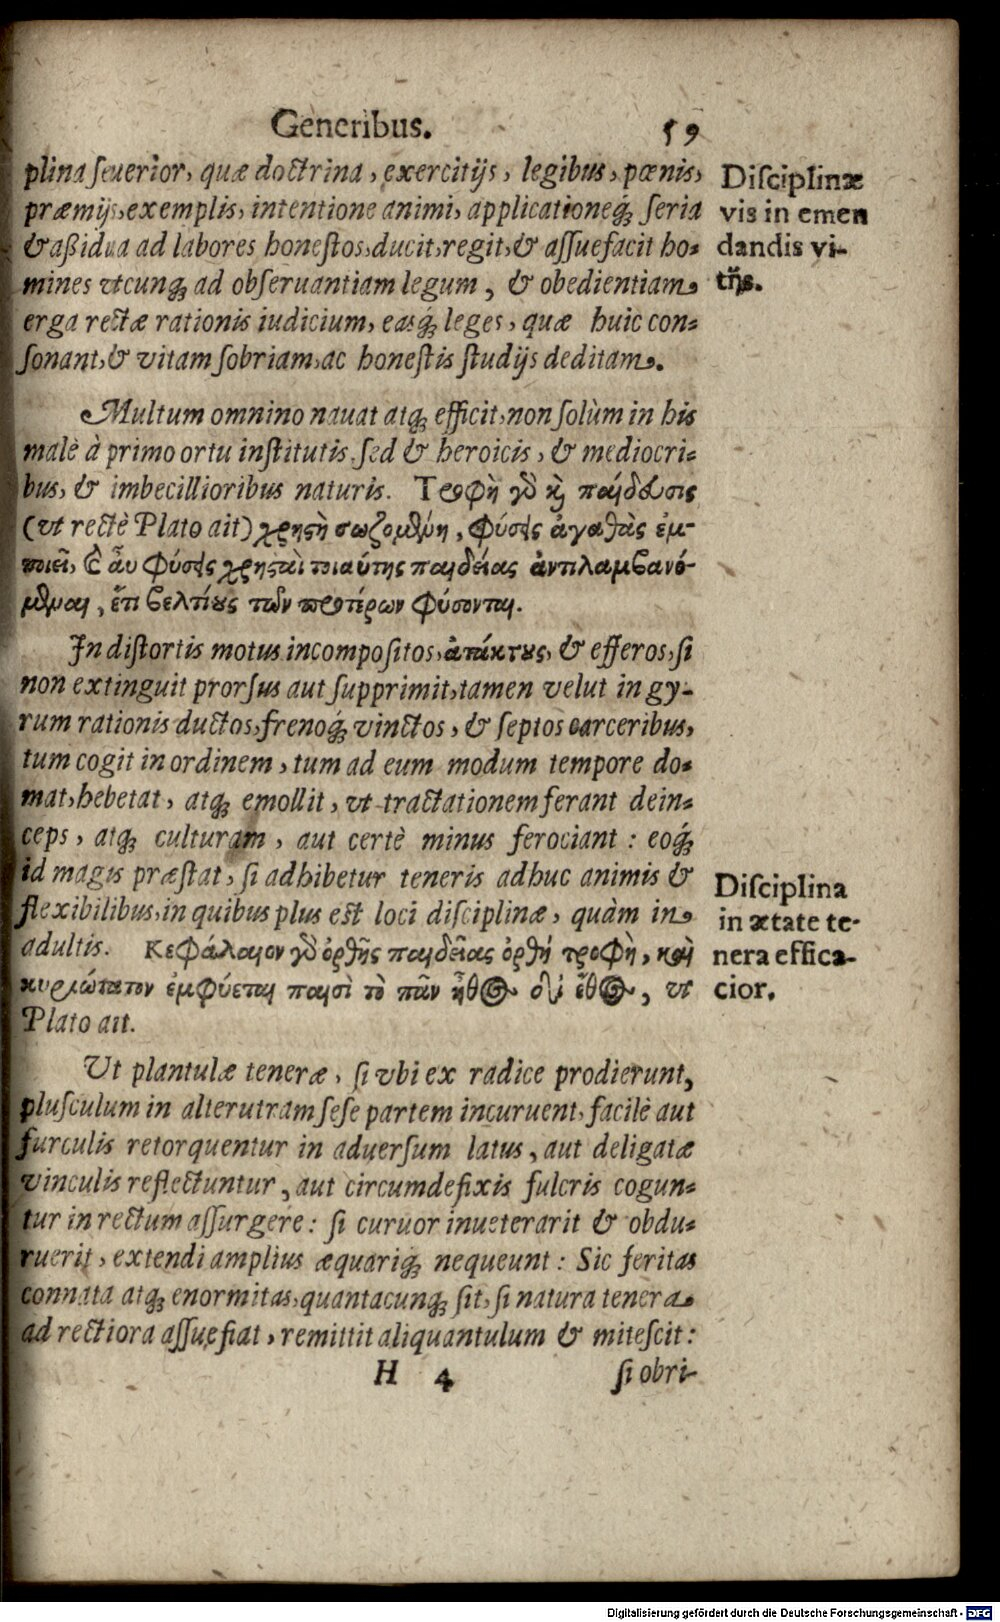 Generibus. 59
plina seuerior, quæ doctrina, exercitijs, legibus, pœnis,
præmijs, exemplis, intentione animi, applicationeq́; seria
& aßidua ad labores honestos, ducit, regit, & assuefacit ho-
mines vtcunq; ad obseruantiam legum, & obedientiam
erga rectæ rationis iudicium, easq́; leges, quæ huic con-
sonant, & vitam sobriam, ac honestis studijs deditam.
Disciplinæ
vis in emen
dandis vi-
tijs.
Multum omnino nauat atq; efficit, non solùm in his
malè à primo ortu institutis, sed & heroicis, & mediocri-
bus, & imbecillioribus naturis. Τροφὴ γὸ κὶ παίδευσις
(vt rectè Plato ait) χρηστὴ σωζομένη, φύσεις ἀγαθὰς ἐμ-
ποιεῖ, καὶ ἆυ φύσεις χρησταὶ τοιαύτης παιδείας ἀντιλαμβανό-
μεναι, ἔτι βελτίους τῶν προτέρων φύσονται.
In distortis motus incompositos, ἀτάκτους, & efferos, si
non extinguit prorsus aut supprimit, tamen velut in gy-
rum rationis ductos, frenoq́; vinctos, & septos carceribus,
tum cogit in ordinem, tum ad eum modum tempore do-
mat, hebetat, atq; emollit, vt tractationem ferant dein-
ceps, atq; culturam, aut certè minus ferociant: eoq́;
id magis præstat, si adhibetur teneris adhuc animis &
flexibilibus, in quibus plus est loci disciplinæ, quàm in
adultis. Κεφάλαιον γὸ ὀρθῆς παιδείας ὀρθή τροφὴ, καὶ
κυριώτατον ἐμφύεται παισὶ τὸ πᾶν ἦθος διὰ ἔθος, vt
Plato ait.
Disciplina
in ætate te-
nera effica-
cior.
Ut plantulæ teneræ, si vbi ex radice prodierunt,
plusculum in alterutram sese partem incuruent, facilè aut
furculis retorquentur in aduersum latus, aut deligatæ
vinculis reflectuntur, aut circumdefixis fulcris cogun-
tur in rectum assurgere: si curuor inueterarit & obdu-
ruerit, extendi amplius æquariq; nequeunt: Sic feritas
connata atq; enormitas, quantacunq; sit, si natura tenera
ad rectiora assuefiat, remittit aliquantulum & mitescit:
H 4 si obri-
Digitalisierung gefördert durch die Deutsche Forschungsgemeinschaft - DFG